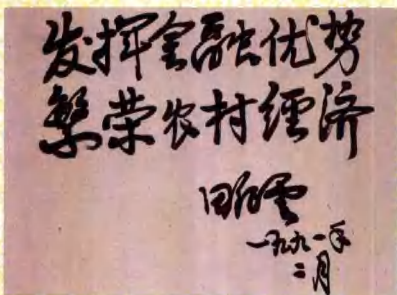 发挥金融优势
繁荣农村经济
一九九一年
二月